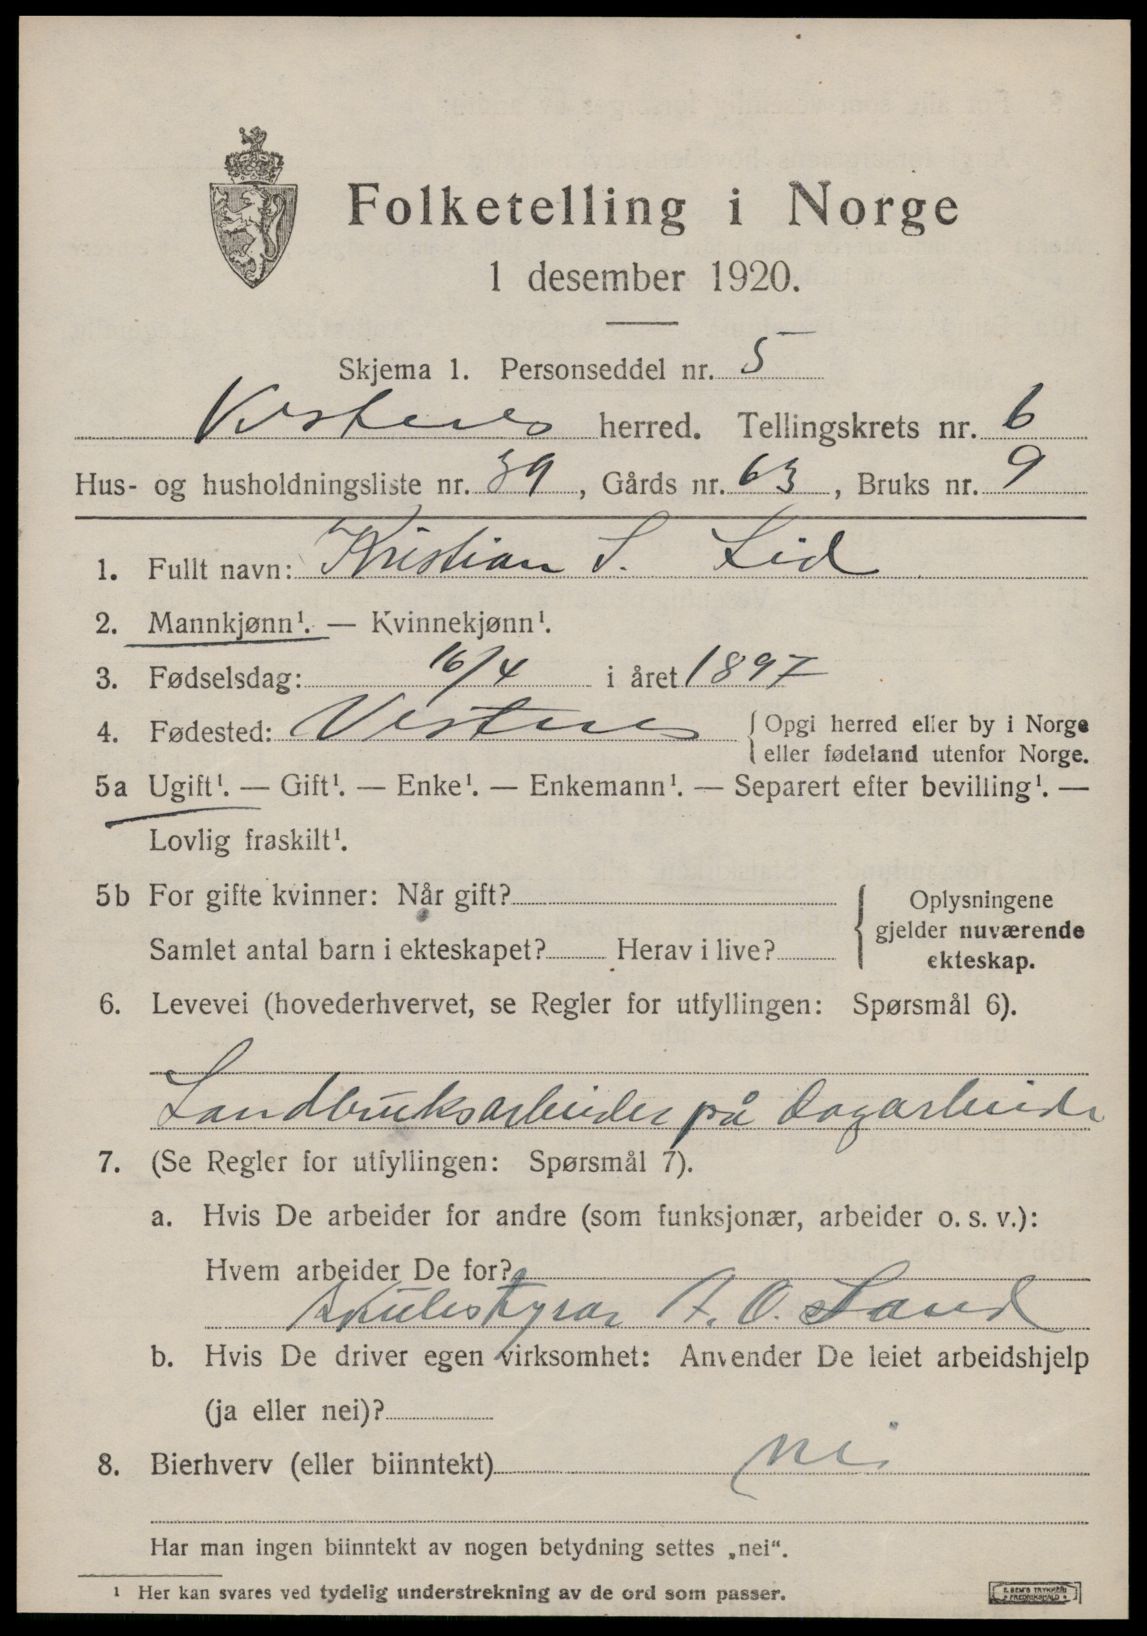 Folketelling i Norge
1 desember 1920.
Skjema 1. Personseddel nr. 5
Vestnes herred. Tellingskrets nr. 6
Hus- og husholdningsliste nr. 39, Gårds nr. 63, Bruks nr. 9
1. Fullt navn: Kristian S. Lid
2. Mannkjønn¹. — Kvinnekjønn¹.
3. Fødselsdag: 16/4 i året 1897
4. Fødested: Vestnes { Opgi herred eller by i Norge
eller fødeland utenfor Norge.
5a Ugift¹. — Gift¹. — Enke¹. — Enkemann¹. — Separert efter bevilling¹. —
Lovlig fraskilt¹.
5b For gifte kvinner: Når gift?
Samlet antal barn i ekteskapet? Herav i live?
Oplysningene
gjelder nuværende
ekteskap.
6. Levevei (hovederhvervet, se Regler for utfyllingen: Spørsmål 6).
Landbruksarbeider på dagarbeide
7. (Se Regler for utfyllingen: Spørsmål 7).
a. Hvis De arbeider for andre (som funksjonær, arbeider o. s. v.):
Hvem arbeider De for?
Skulestyrar A. O. Sand
b. Hvis De driver egen virksomhet: Anvender De leiet arbeidshjelp
(ja eller nei)?
8. Bierhverv (eller biinntekt) nei
Har man ingen biinntekt av nogen betydning settes „nei“.
¹ Her kan svares ved tydelig understrekning av de ord som passer.
E. SEM'S TRYKKERI
FREDRIKSHALD